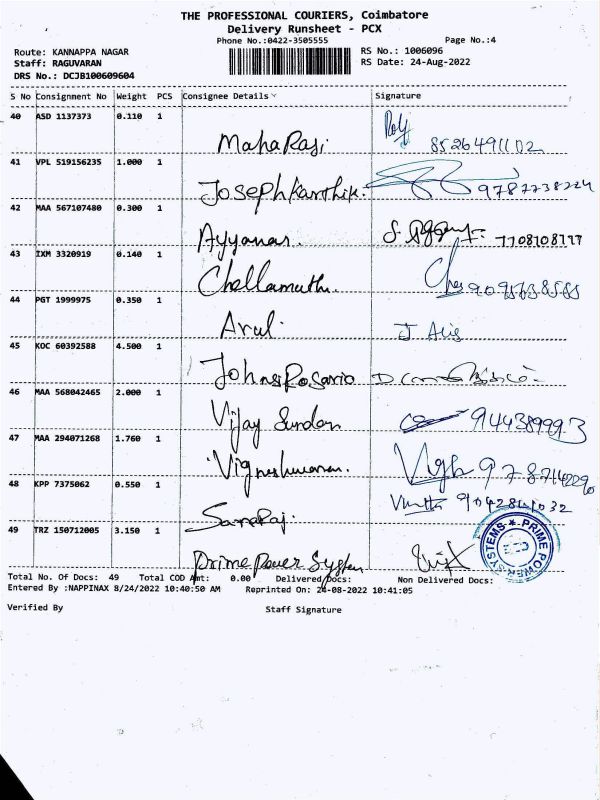 THE PROFESSIONAL COURIERS, Coimbatore
Delivery Runsheet - PCX
Phone No.:0422-3505555
Page No.:4
Route: KANNAPPA NAGAR
RS No.: 1006096
Staff: RAGUVARAN
RS Date: 24-Aug-2022
DRS No.: DCJB100609604
S No Consignment No Weight PCS Consignee Details Signature
40 ASD 1137373 0.110 1
MahaRasi 8526491102
41 VPL 519156235 1.000 1
Josephkarthik.
42 MAA 567107480 0.300 1
Ayyanar.
43 IXM 3320919 0.140 1
Chellamuthu.
44 PGT 1999975 0.350 1
Arul.
45 KOC 60392588 4.500 1
Johns Rosario
46 MAA 568042465 2.000 1
Vijay Sundar
47 MAA 294071268 1.760 1
Vigneshwaran.
48 KPP 7375062 0.550 1
49 TRZ 150712005 3.150 1
Prime Power System
PRIME POWER SYSTEMS
Total No. Of Docs: 49 Total COD Amt: 0.00 Delivered Docs: Non Delivered Docs:
Entered By :NAPPINAX 8/24/2022 10:40:50 AM Reprinted On: 24-08-2022 10:41:05
Verified By Staff Signature